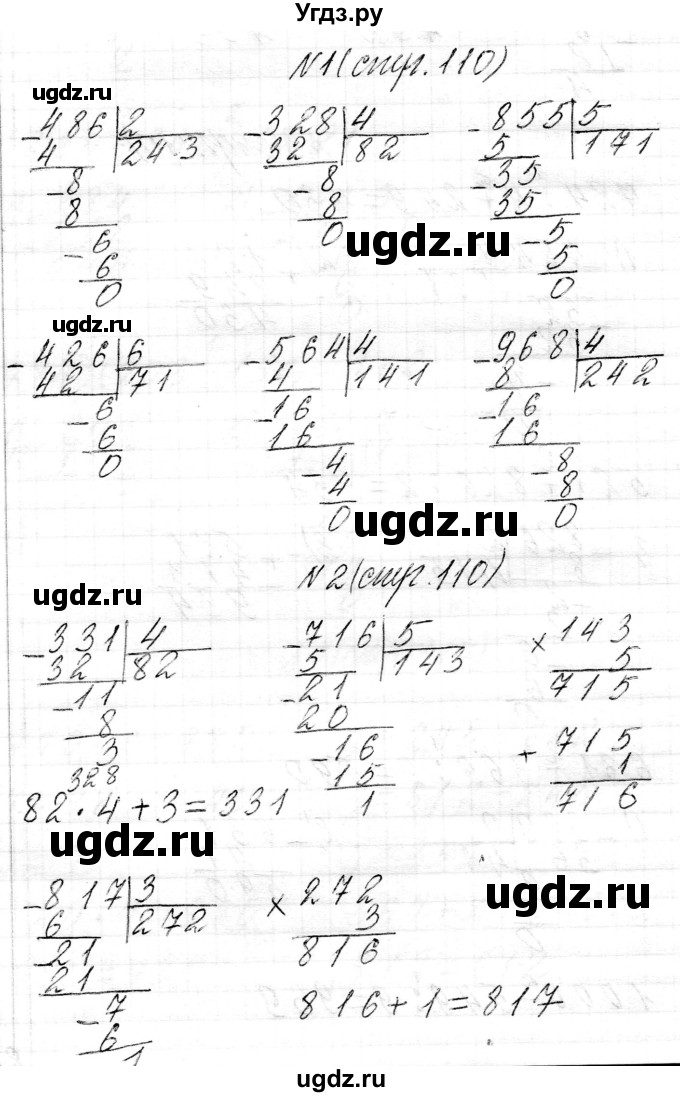 Угдз.ру
N1(стр.110)
ugdz.ru
-486|2
4 243
-8
8
-6
6
0
-328|4
32 82
-8
8
0
-855|5
5 171
-35
35
-5
5
0
ugdz.ru
ugdz.ru
-426|6
42 71
-6
6
0
-564|4
4 141
-16
16
-4
4
0
-968|4
8 242
-16
16
-8
8
0
ugdz.ru
N2(стр.110)
ugdz.ru
-331|4
32 82
-11
8
3
328
82·4+3=331
-716|5
5 143
-21
20
-16
15
1
×143
5
715
+715
1
716
ugdz.ru
-817|3
6 272
-21
21
-7
6
1
×272
3
816
816+1=817
ugdz.ru
ugdz.ru